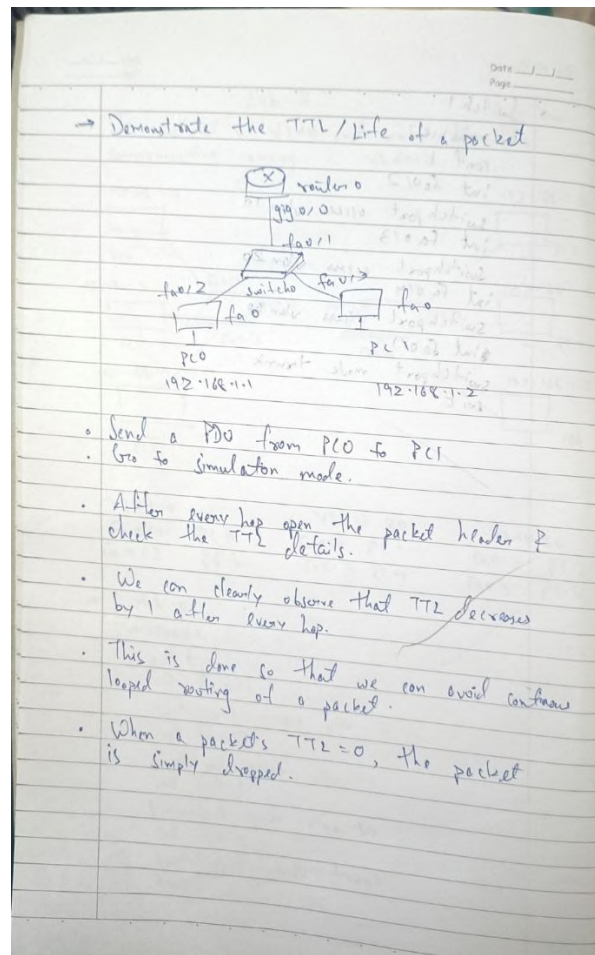 Date
Page
→ Demonstrate the TTL / Life of a packet
router 0
gig 0/0
fa0/1
fa0/2 switch0 fa0/3
fa0 fa0
PC0 PC1
192.168.1.1 192.168.1.2
• Send a PDU from PC0 to PC1
• Go to simulation mode.
• After every hop open the packet header &
check the TTL details.
• We can clearly observe that TTL decreases
by 1 after every hop.
• This is done so that we can avoid
looped routing of a packet.
• When a packet's TTL = 0, the packet
is simply dropped.